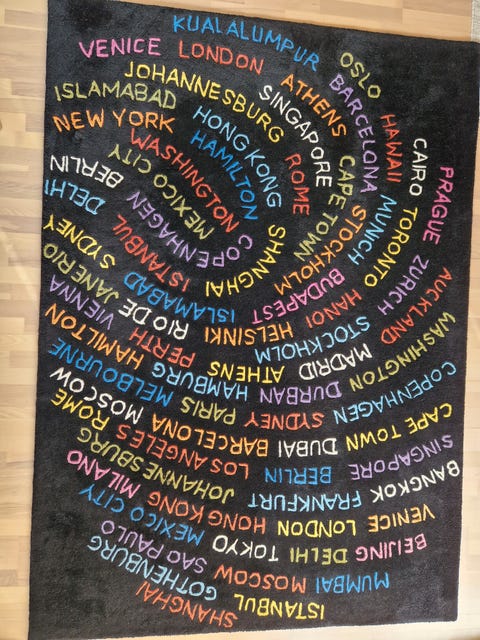 KUALALUMPUR OSLO
VENICE LONDON ATHENS BARCELONA HAWAII CAIRO PRAGUE
JOHANNESBURG SINGAPORE CAPE TOWN MUNICH TORONTO ZURICH AUCKLAND WASHINGTON
ISLAMABAD HONG KONG ROME STOCKHOLM
NEW YORK WASHINGTON HAMILTON
MEXICO CITY
BERLIN COPENHAGEN SHANGHAI
DELHI ISTANBUL BUDAPEST
SYDNEY ISLAMABAD HANOI
RIO DE JANERIO HELSINKI STOCKHOLM
VIENNA PERTH ATHENS MADRID
HAMILTON HAMBURG DURBAN WASHINGTON COPENHAGEN
MELBOURNE PARIS SYDNEY CAPE TOWN
MOSCOW BARCELONA DUBAI SINGAPORE
ROME LOS ANGELES BERLIN BANGKOK
JOHANNESBURG FRANKFURT
MILANO HONG KONG LONDON VENICE
MEXICO CITY TOKYO DELHI BEIJING
SAO PAULO MOSCOW MUMBAI
GOTHENBURG ISTANBUL
SHANGHAI